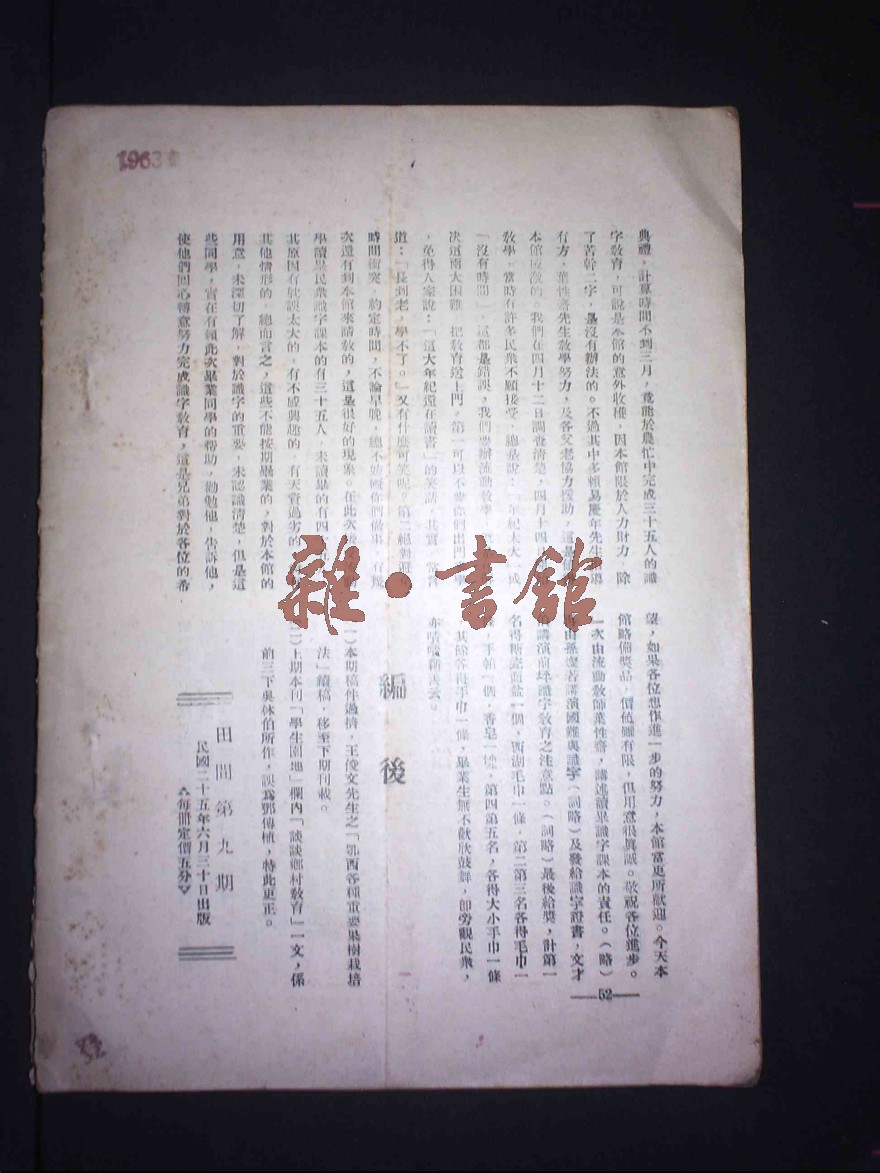 典禮，計算時間不到三月，竟能於農忙中完成三十五人的識
字教育，可說是本館的意外收穫，因本館限於人力財力，除
了苦幹二字，是沒有辦法的。不過其中多賴易慶年先生
有方，葉性齋先生教學努力，及各父老協力援助，這是
本館 的。我們在四月十二日調查清楚，四月十四
教學，當時有許多民衆不願接受，總是說：「年紀太大」或
「沒有時間」，這都是錯誤，我們要辦流動教學，
决這兩大困難，把教育送上門，第一可以不要你們出門
，免得人家說：「這大年紀還在讀書」的笑話，其實
道：「長到老，學不了。」又有什麼可笑呢？第二絕對避
時間衝突，約定時間，不論早晚，總不妨礙你們做事
次還有到本館來請教的，這是很好的現象。在此次
學讀畢民衆識字課本的有三十五人，未讀畢的有四
其原因有年齡太大的，有不感興趣的，有天資過劣的
其他情形的，總而言之，這些不能按期畢業的，對於本館的
用意，未深切了解，對於識字的重要，未認識清楚，但是這
些同學，實在有賴此次畢業同學的幫助，勸勉他，告訴他，
使他們回心轉意努力完成識字教育，這是兄弟對於各位的希
望，如果各位想作進一步的努力，本館當更所歡迎。今天本
館略備獎品，價值雖有限，但用意很眞誠。敬祝各位進步。
一次由流動教師葉性齋，講述讀畢識字課本的責任。（略）
由孫 若講演國難與識字（詞略）及發給識字證書，文才
講演 識字教育之注意點。（詞略）最後給獎，計第一
名得 面盆一個，西湖毛巾一條，第二第三名各得毛巾一
，手帕一個，香皂一 ，第四第五名，各得大小手巾一條
其餘各得手巾一條，畢業生無不歡欣鼓舞，即旁觀民衆，
亦嘖嘖稱羨云。
—52—
編後
(一)本期稿件過擠，王俊文先生之「鄂西各種重要果樹栽培
法」續稿，移至下期刊載。
(二)上期本刊「學生園地」欄內「談談鄉村教育」一文，係
前三下吳休伯所作，誤爲鄧傳植，特此更正。
田間第九期
民國二十五年六月三十日出版
每冊定價五分
1963
雜·書館